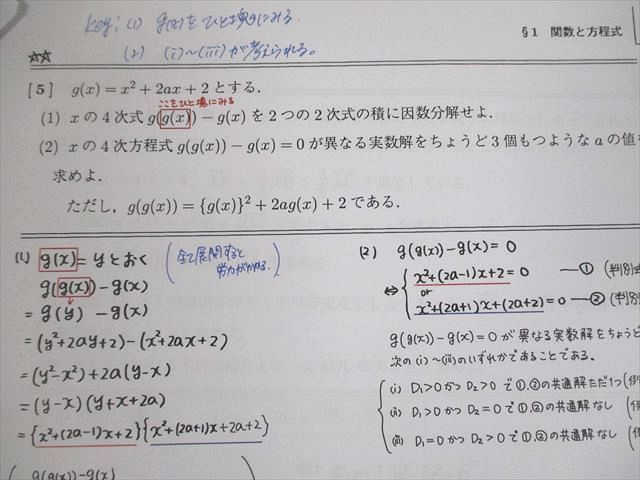 key: (1) g(x)をひと塊にみる
(2) (i)~(iii)が考えられる。
§1 関数と方程式
☆☆
[5] g(x) = x² + 2ax + 2 とする.
ここをひと塊にみる
(1) xの4次式 g(g(x)) − g(x) を2つの2次式の積に因数分解せよ.
(2) xの4次方程式 g(g(x)) − g(x) = 0 が異なる実数解をちょうど3個もつような a の値を
求めよ.
ただし, g(g(x)) = {g(x)}² + 2ag(x) + 2 である.
(1) g(x) = y とおく
(全て展開すると
労力がかかる.)
g(g(x)) − g(x)
= g(y) − g(x)
= (y²+2ay+2) − (x²+2ax+2)
= (y²−x²) + 2a(y−x)
= (y−x)(y+x+2a)
= {x²+(2a−1)x+2}{x²+(2a+1)x+2a+2}
g(g(x))−g(x)
(2) g(g(x))−g(x) = 0
⇔ { x²+(2a−1)x+2 = 0 ―① (判別式
or
x²+(2a+1)x+(2a+2) = 0 ―② (判別
g(g(x))−g(x) = 0 が異なる実数解をちょうど
次の(i)~(iii)のいずれかであることである。
(i) D₁>0 かつ D₂>0 で①,②の共通解ただ1つ
(ii) D₁>0 かつ D₂=0 で①,②の共通解なし
(iii) D₁=0 かつ D₂>0 で①,②の共通解なし